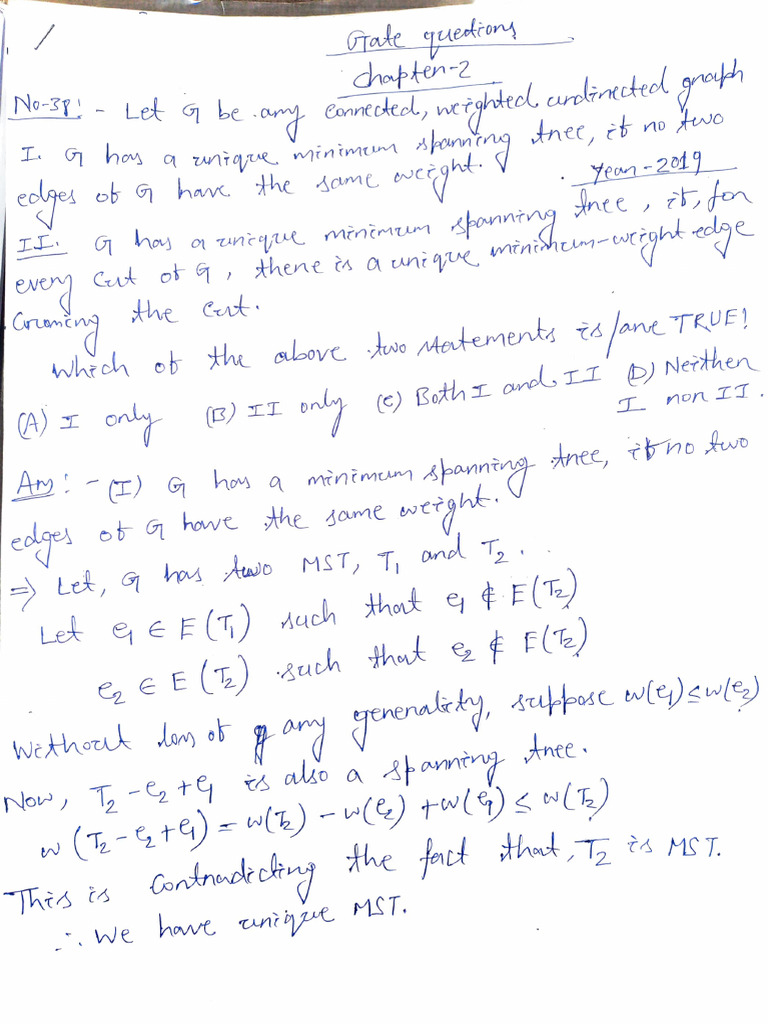 Gate questions
chapter-2
No-38:- Let G be any connected, weighted undirected graph
I. G has a unique minimum spanning tree, if no two
edges of G have the same weight.
Year-2019
II. G has a unique minimum spanning tree, if, for
every cut of G, there is a unique minimum-weight edge
crossing the cut.
Which of the above two statements is/are TRUE!
(A) I only (B) II only (C) Both I and II (D) Neither
I nor II.
Ans:- (I) G has a minimum spanning tree, if no two
edges of G have the same weight.
⇒ Let, G has two MST, T₁ and T₂.
Let e₁ ∈ E(T₁) such that e₁ ∉ E(T₂)
e₂ ∈ E(T₂) such that e₂ ∉ E(T₂)
Without loss of any generality, suppose w(e₁) ≤ w(e₂)
Now, T₂ - e₂ + e₁ is also a spanning tree.
w(T₂ - e₂ + e₁) = w(T₂) - w(e₂) + w(e₁) ≤ w(T₂)
This is contradicting the fact that, T₂ is MST.
∴ We have unique MST.